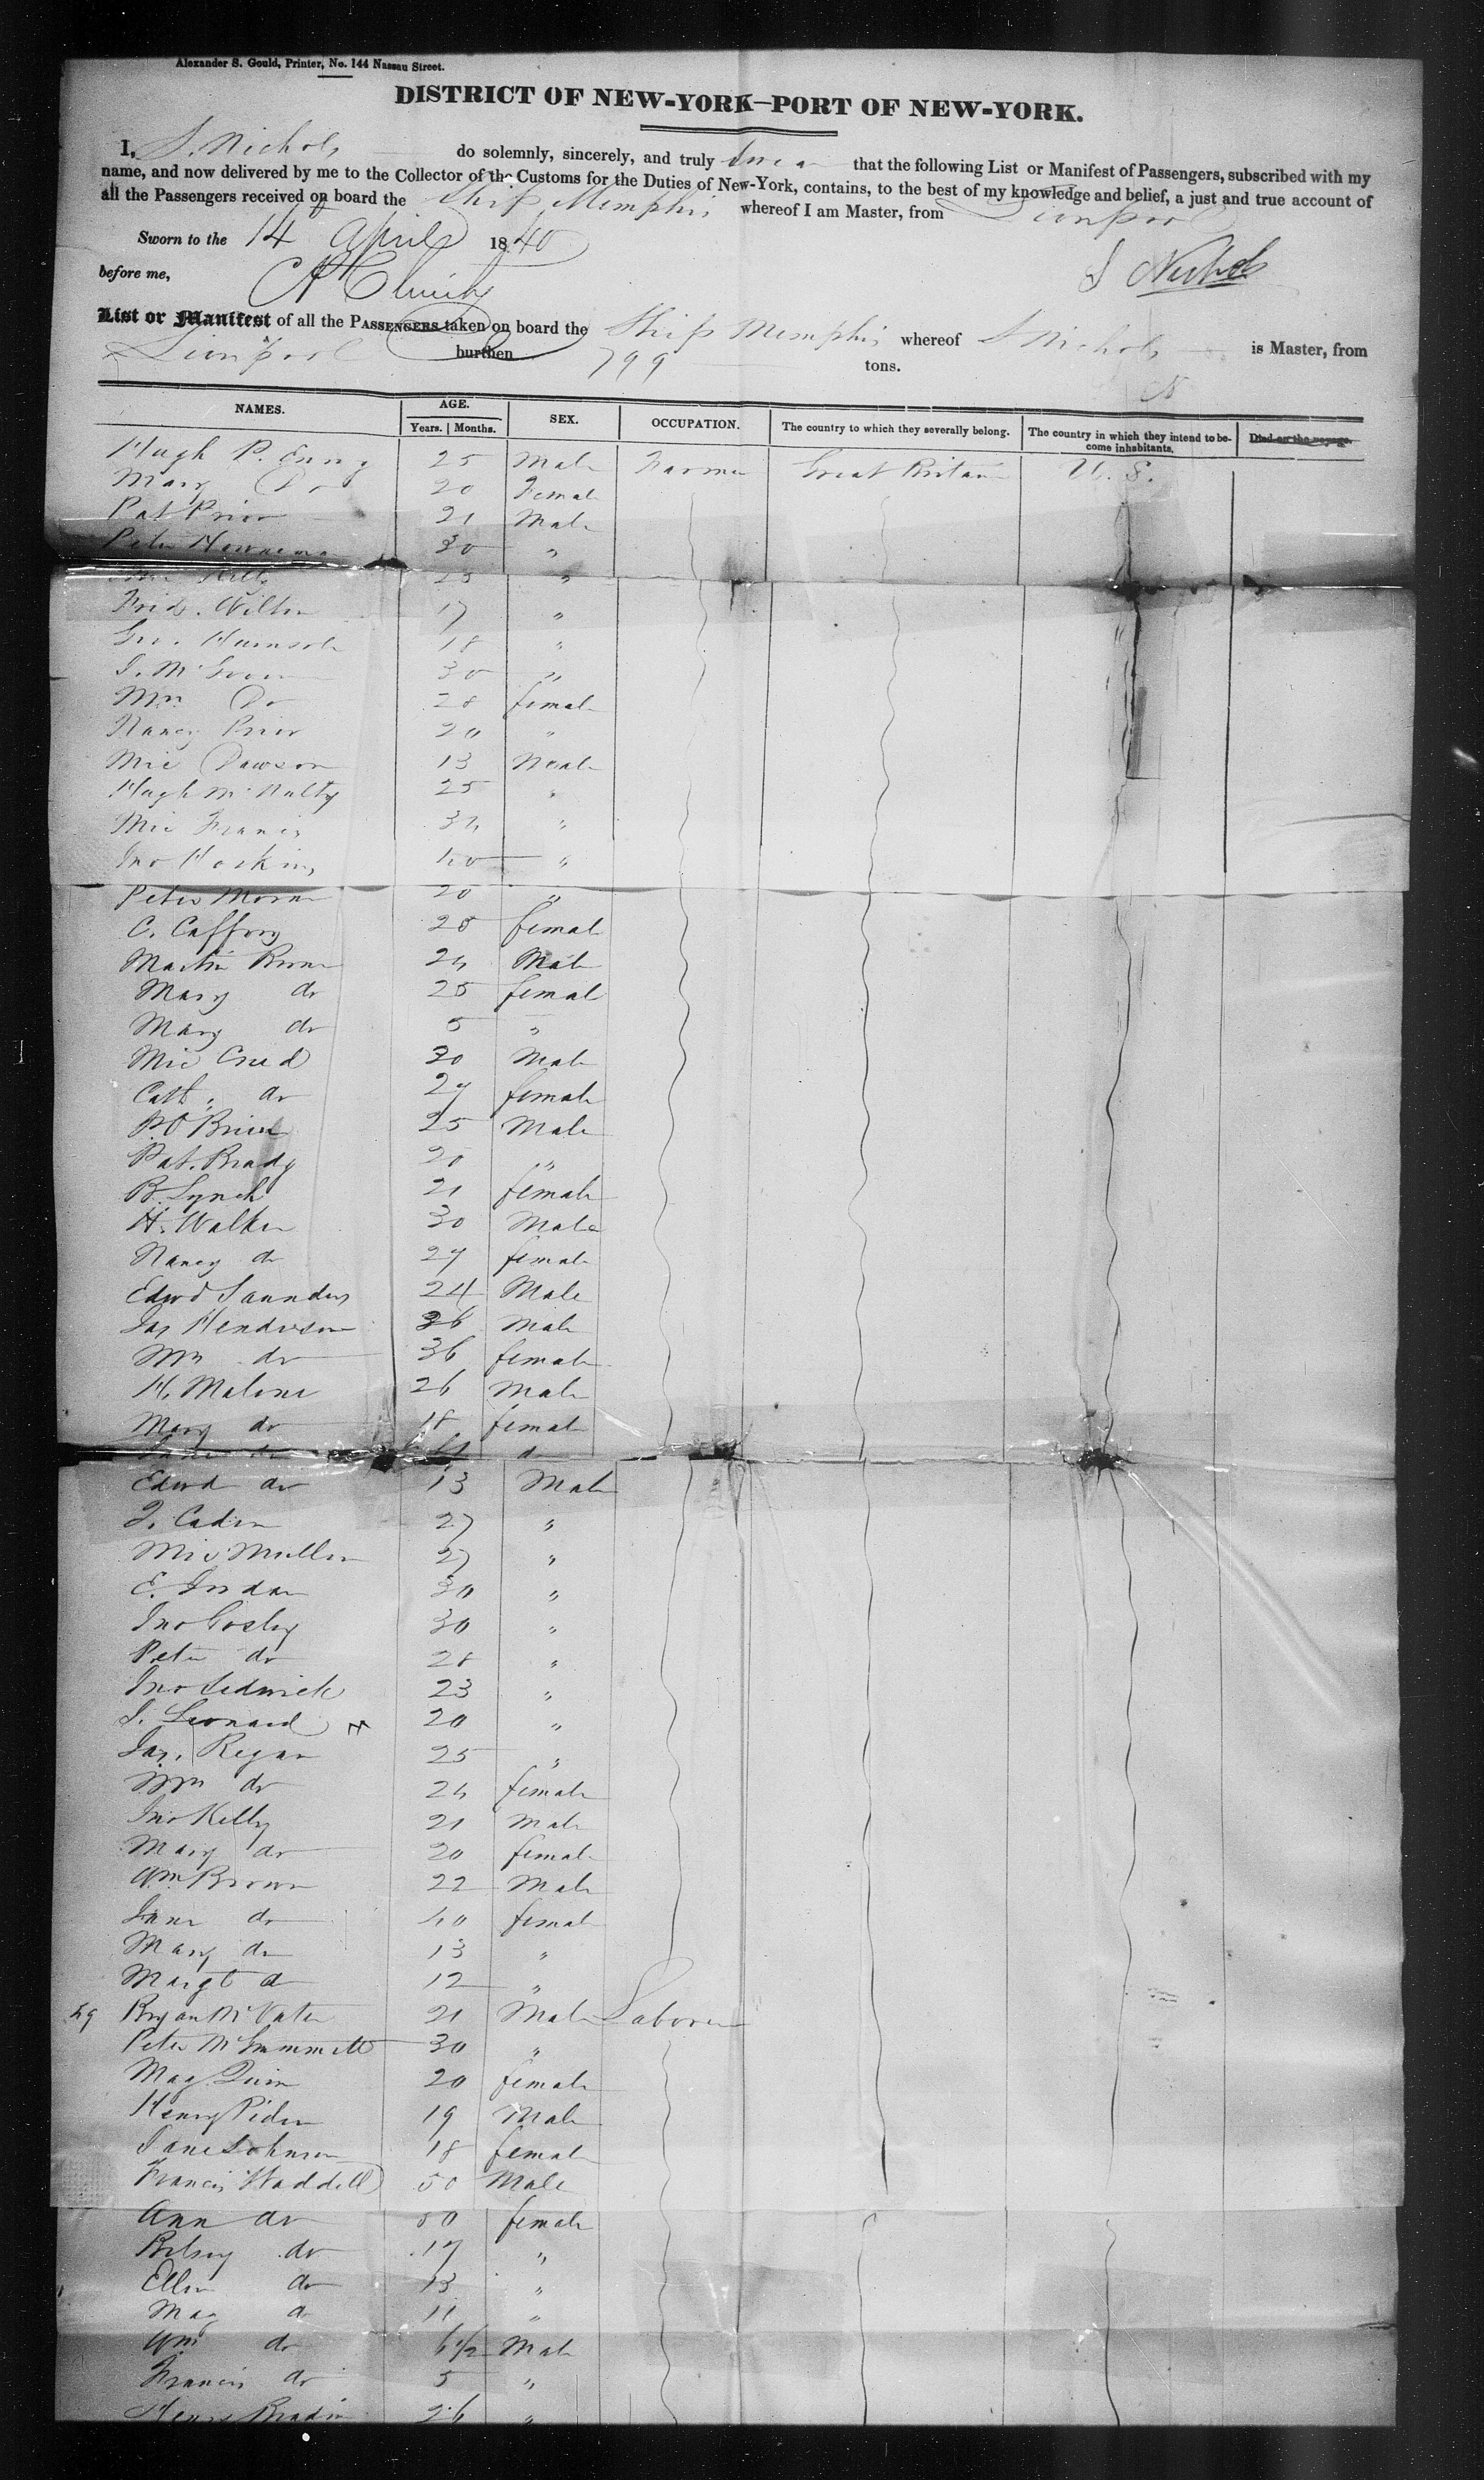 Alexander S. Gould, Printer, No. 144 Nassau Street.
DISTRICT OF NEW-YORK—PORT OF NEW-YORK.
I, S. Nichols do solemnly, sincerely, and truly swear that the following List or Manifest of Passengers, subscribed with my
name, and now delivered by me to the Collector of the Customs for the Duties of New-York, contains, to the best of my knowledge and belief, a just and true account of
all the Passengers received on board the Ship Memphis whereof I am Master, from Liverpool
Sworn to the 14 April 1840
before me, S Nichols
List or Manifest of all the PASSENGERS taken on board the Ship Memphis whereof S Nichols is Master, from
Liverpool burthen 799 tons.
NAMES. AGE. Years. Months. SEX. OCCUPATION. The country to which they severally belong. The country in which they intend to become inhabitants. Died on the voyage.
Hugh P. 25 Male Farmer Great Britain U. S.
Mary Do 20 Female
Pat Prior 21 Male
Peter 30 "
25 "
Fred. 17 "
Geo. 18 "
30 "
Mrs Do 28 female
Nancy Prior 20 "
Mic Dawson 13 Male
Hugh McNulty 25 "
Mic Francis 34 "
Jno Hoskins 40 "
Peter Moran 20 "
C. Caffrey 28 female
Martin 24 Male
Mary do 25 female
Mary do 5 "
Mic Creed 30 Male
Cath. do 27 female
P. O'Brien 25 Male
Pat. Brady 20 "
B. Lynch 21 female
H. Walker 30 Male
Nancy do 27 female
Edwd Saunders 24 Male
Jas Henderson 36 Male
Mrs do 36 female
H. Malone 26 Male
Mary do 18 female
Jane do do
Edwd do 13 Male
27 "
Mic Mullen 27 "
E. Jordan 30 "
Jno 30 "
Peter do 28 "
Jno Sedwick 23 "
J. Leonard 20 "
Jas. Regan 25 "
Mrs do 24 female
Jno Kelly 21 Male
Mary do 20 female
Wm Brown 22 Male
Jane do 40 female
Mary do 13 "
Margt do 12 "
49 Bryan 21 Male Laborer
Peter 30 "
Mag Quin 20 female
Henry 19 Male
Jane Johnson 18 female
Francis Waddell 50 Male
Ann do 50 female
Betsey do 17 "
Ellen do 13 "
Mag do 11 "
Wm do 6 1/2 Male
Francis do 5 "
Henry 26 "